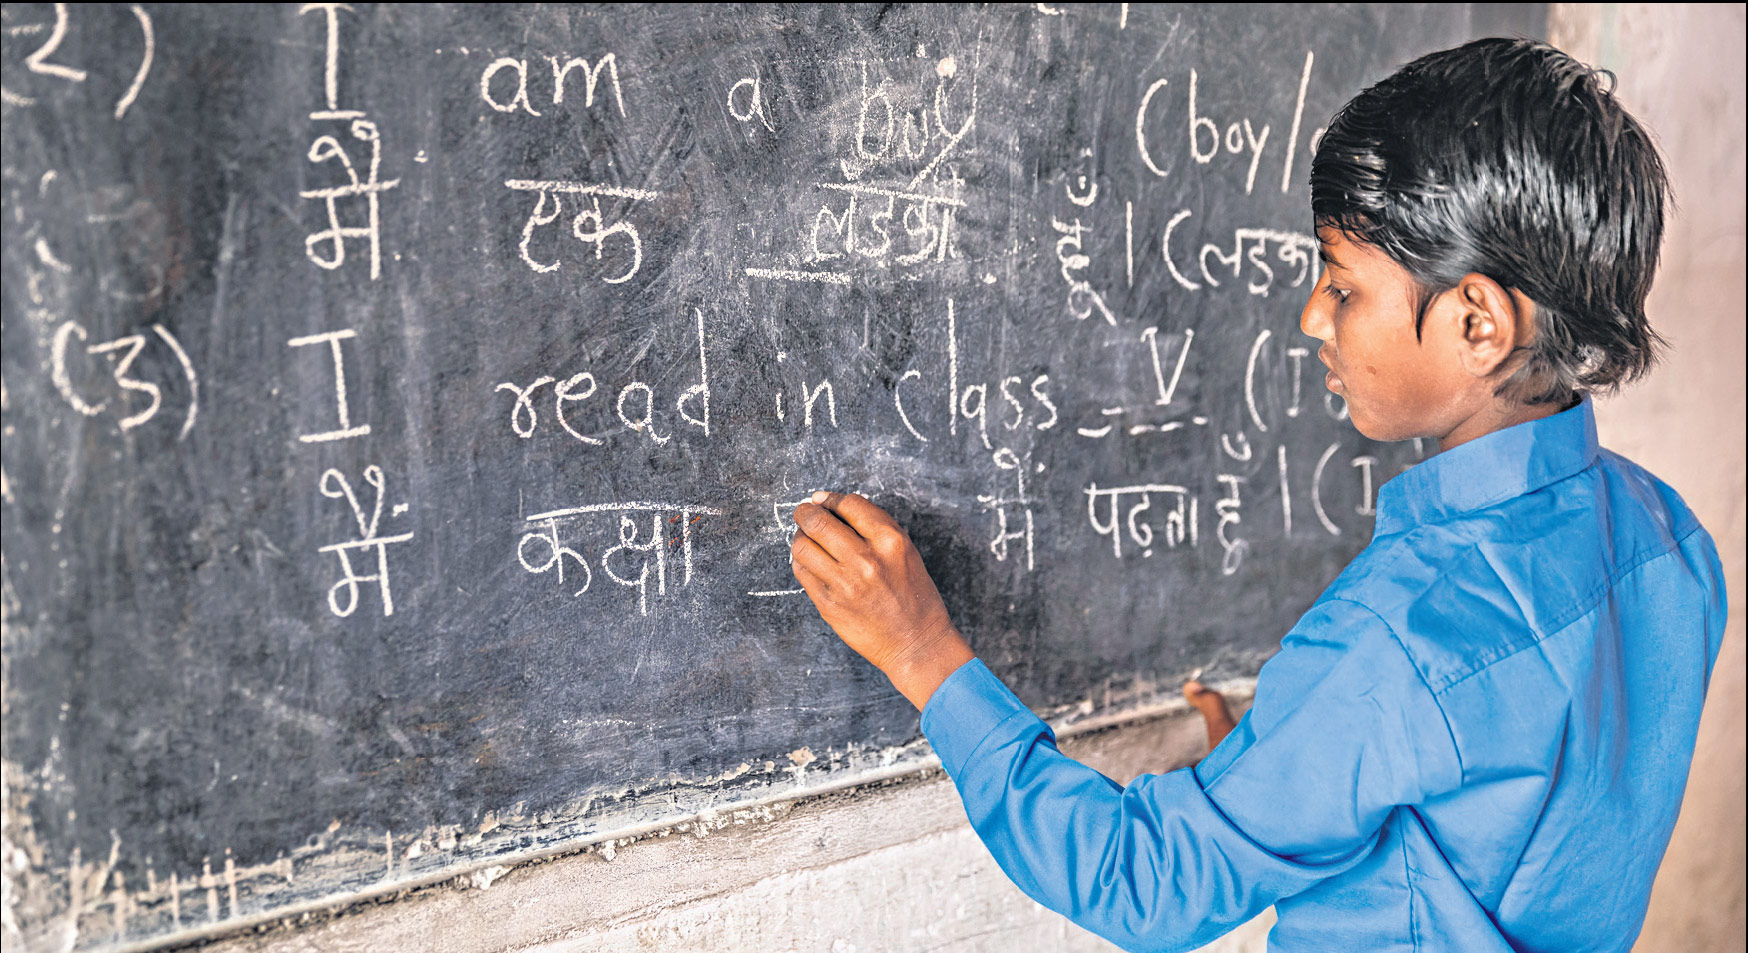 २) I am a boy (boy/
मैं एक लड़का हूँ । (लड़का
(३) I read in class V (I
मैं कक्षा में पढ़ता हूँ । (I